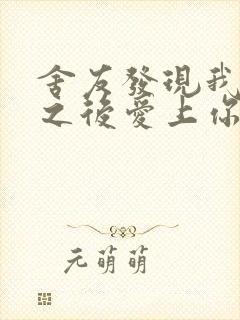 舍友發現我
之後愛上你
元萌萌